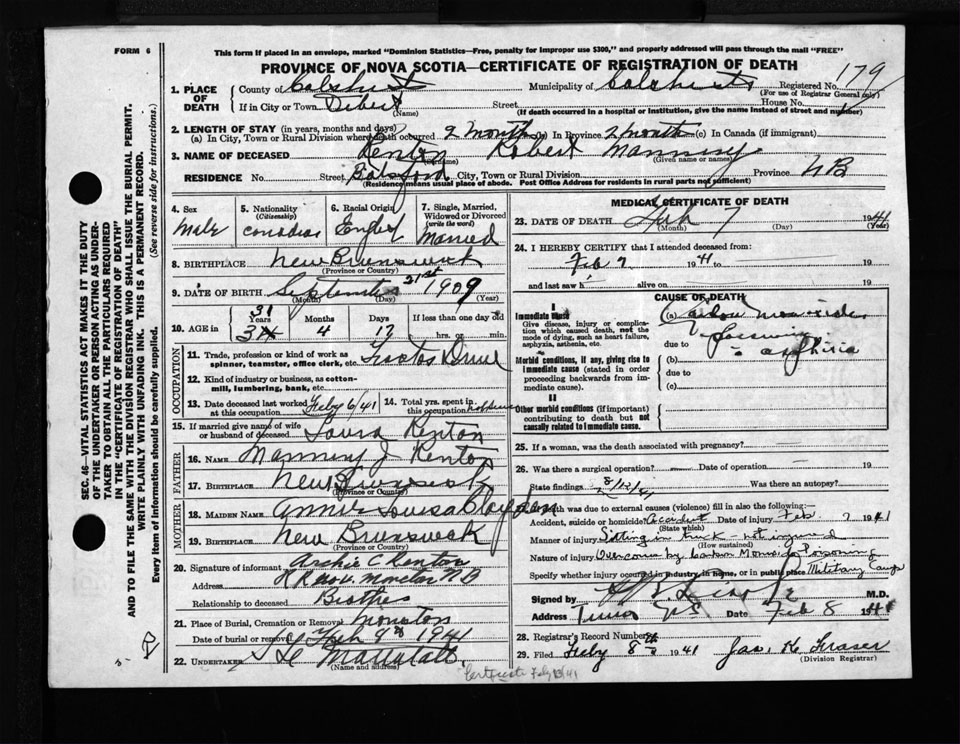 FORM 6
This form if placed in an envelope, marked "Dominion Statistics—Free, penalty for improper use $300," and properly addressed will pass through the mail "FREE"
PROVINCE OF NOVA SCOTIA—CERTIFICATE OF REGISTRATION OF DEATH
179
1. PLACE OF DEATH
County of Colchester Municipality of Colchester Registered No.
(For use of Registrar General only)
If in City or Town Debert Street House No.
(Name) (If death occurred in a hospital or institution, give the name instead of street and number)
2. LENGTH OF STAY (in years, months and days)
(a) In City, Town or Rural Division where death occurred 2 months (b) In Province 2 months (c) In Canada (if immigrant)
3. NAME OF DECEASED Kenton Robert Manning
(Surname) (Given name or names)
RESIDENCE No. Street Botsford City, Town or Rural Division Province N B
(Residence means usual place of abode. Post Office Address for residents in rural parts not sufficient)
4. Sex Male
5. Nationality (Citizenship) Canadian
6. Racial Origin English
7. Single, Married, Widowed or Divorced (write the word) Married
8. BIRTHPLACE New Brunswick
(Province or Country)
9. DATE OF BIRTH September 21st 1909
(Month) (Day) (Year)
10. AGE in Years 31 Months 4 Days 17 If less than one day old hrs. or min.
OCCUPATION
11. Trade, profession or kind of work as spinner, teamster, office clerk, etc.
12. Kind of industry or business, as cotton-mill, lumbering, bank, etc.
13. Date deceased last worked at this occupation Feby 6/41
14. Total yrs. spent in this occupation
15. If married give name of wife or husband of deceased Laura Kenton
FATHER
16. NAME Manning J Kenton
17. BIRTHPLACE New Brunswick
(Province or Country)
MOTHER
18. MAIDEN NAME Annie Louisa
19. BIRTHPLACE New Brunswick
(Province or Country)
20. Signature of informant Archie C Kenton
Address Moncton N B
Relationship to deceased Brother
21. Place of Burial, Cremation or Removal Moncton
Date of burial or removal Feb 9th 1941
22. UNDERTAKER Mattatall
(Name and address)
MEDICAL CERTIFICATE OF DEATH
23. DATE OF DEATH Feb 7 1941
(Month) (Day) (Year)
24. I HEREBY CERTIFY that I attended deceased from:
Feb 7 1941 to 19
and last saw h alive on 19
CAUSE OF DEATH
I
Immediate Cause
Give disease, injury or complication which caused death, not the mode of dying, such as heart failure, asphyxia, asthenia, etc.
(a) Carbon monoxide
due to
(b)
due to
(c)
Morbid conditions, if any, giving rise to immediate cause (stated in order proceeding backwards from immediate cause).
II
Other morbid conditions (if important) contributing to death but not causally related to immediate cause.
25. If a woman, was the death associated with pregnancy?
26. Was there a surgical operation? Date of operation 19
State findings Was there an autopsy?
Death was due to external causes (violence) fill in also the following:—
Accident, suicide or homicide? Accident Date of injury Feb. 7 1941
(State which)
Manner of injury Sitting in truck - not injured
(How sustained)
Nature of injury Overcome by Carbon Monoxide Poisoning
Specify whether injury occurred in industry, in home, or in public place Military Camp
Signed by M.D.
Address Truro N S Date Feb 8 1941
28. Registrar's Record Number
29. Filed Feby 8th 1941 Jas. K Fraser
(Division Registrar)
Certificate Feby 13/41
SEC. 46—VITAL STATISTICS ACT MAKES IT THE DUTY
OF THE UNDERTAKER OR PERSON ACTING AS UNDER-
TAKER TO OBTAIN ALL THE PARTICULARS REQUIRED
IN THE "CERTIFICATE OF REGISTRATION OF DEATH"
AND TO FILE THE SAME WITH THE DIVISION REGISTRAR WHO SHALL ISSUE THE BURIAL PERMIT.
WRITE PLAINLY WITH UNFADING INK. THIS IS A PERMANENT RECORD.
Every item of Information should be carefully supplied. (See reverse side for instructions.)